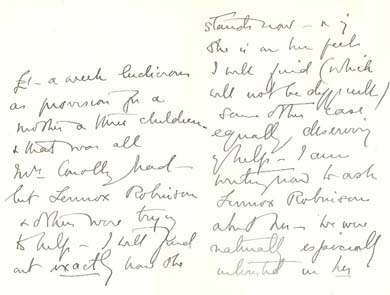 £1 – a week ludicrous
as provision for a
mother & three children –
& that was all
Mrs Conolly had –
but Lennox Robinson
& others were trying
to help – I will find
out exactly how she
stands now – & if
she is on her feet
I will find (which
will not be difficult)
some other case
equally deserving
of help – I am
writing now to ask
Lennox Robinson
about her – we were
naturally especially
interested in her